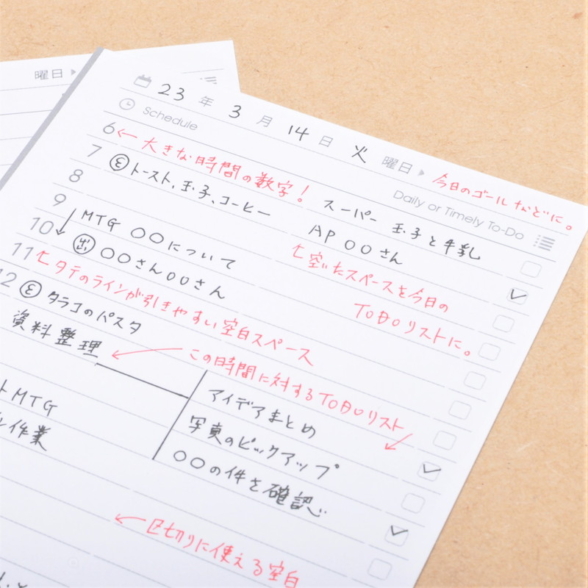 曜日
23 年 3 月 14 日 火 曜日
今日のゴールなどに。
Schedule
Daily or Timely To-Do
6 ← 大きな時間の数字!
スーパー 玉子と牛乳
7 トースト、玉子、コーヒー
AP 〇〇さん
8
↑ 空いたスペースを今日の
TODOリストに。
9 MTG 〇〇について
10 出 〇〇さん〇〇さん
11 ↑タテのラインが引きやすい空白スペース
12 タラコのパスタ
この時間に対するTODOリスト
資料整理
アイデアまとめ
写真のピックアップ
トMTG
〇〇の件を確認
作業
← 区切りに使える空白